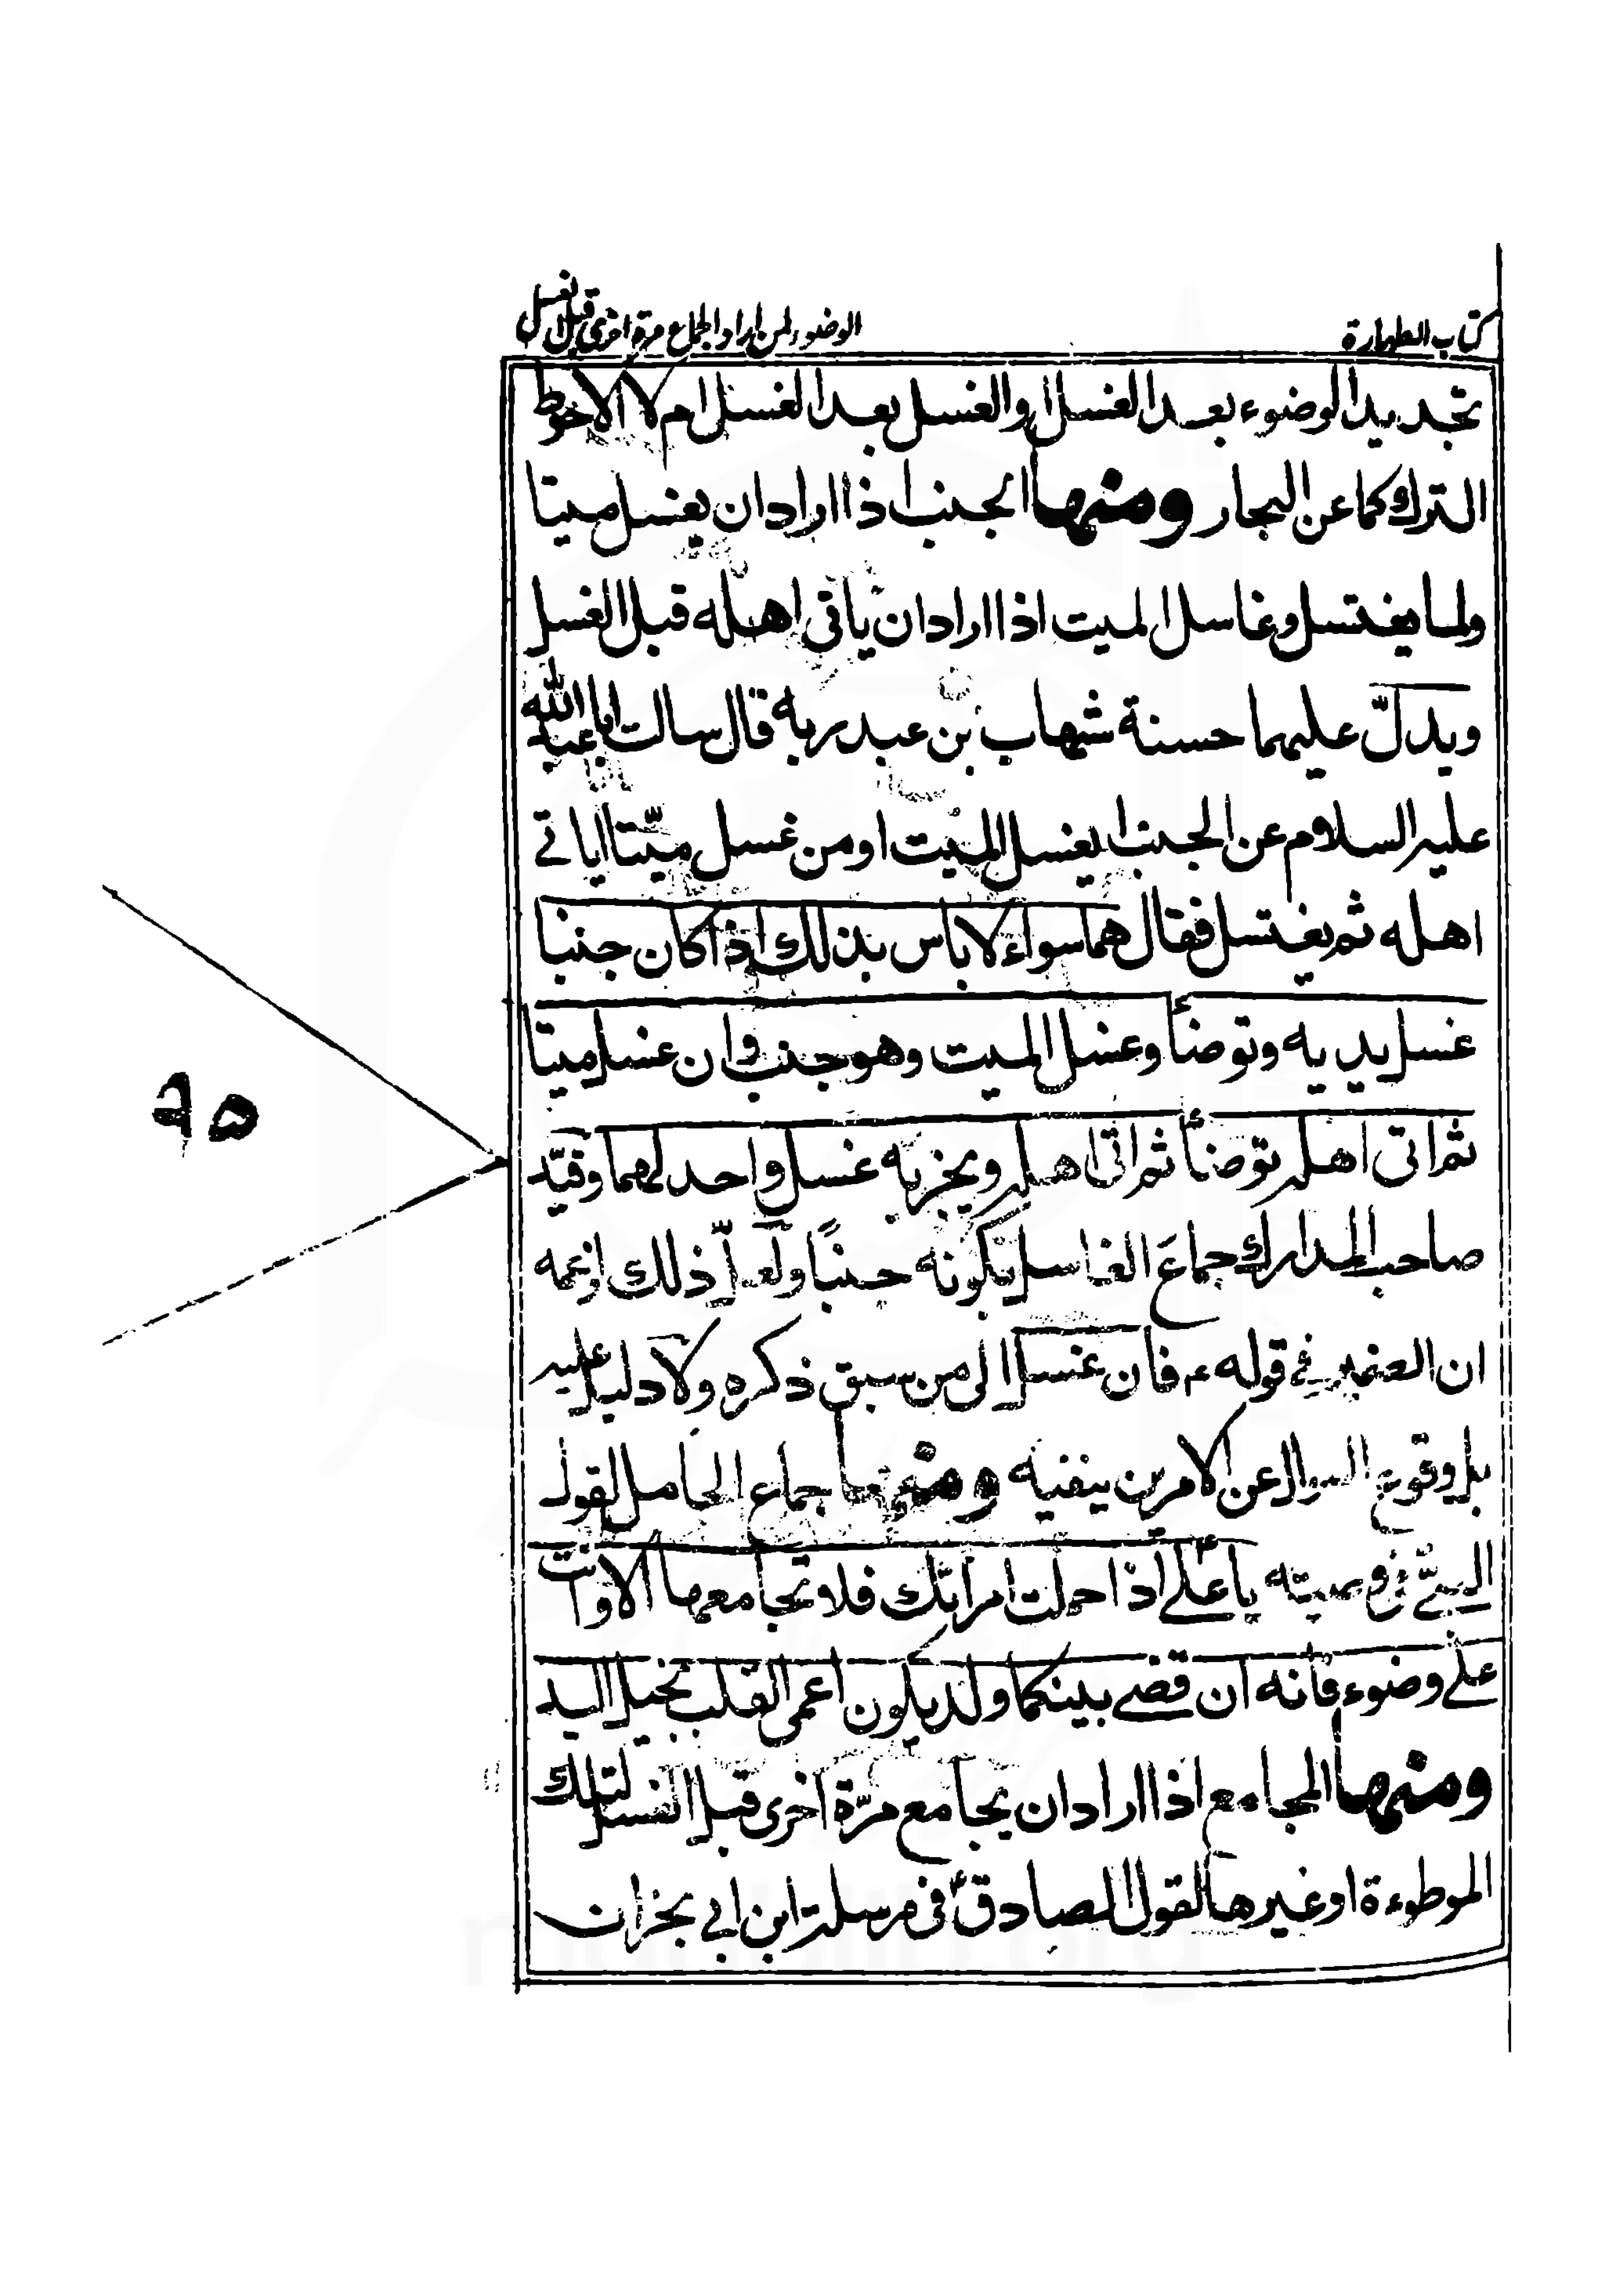 كتاب الطهارة
الوضوء لمن اراد الجماع مرة اخرى قبل الغسل
تجديد الوضوء بعد الغسل او الغسل بعد الغسل ام لا الاحوط
الترك كما عن البحار ومنها الجنب اذا اراد ان يغسل ميتا
ولما يغتسل وغاسل الميت اذا اراد ان ياتى اهله قبل الغسل
ويدلّ عليهما حسنة شهاب بن عبد ربه قال سالت ابا عبد الله
عليه السلام عن الجنب ايغسل الميت او من غسل ميّتا اياتے
اهله ثم يغتسل فقال هما سواء لا باس بذلك اذا كان جنبا
غسل يديه وتوضأ وغسل الميت وهو جنب وان غسل ميتا
ثم اتى اهله توضأ ثم اتى اهله ويجزيه غسل واحد لهما وقيّد
صاحب المدارك جماعَ الغاسل بكونه جنبًا ولعلّ ذلك لزعمه
ان الضمير فے قوله ع فان غسل الى من سبق ذكره ولا دليل عليه
بل وقوع السوال عن الامرين ينفيه ومنها جماع الحامل لقول
النبيّ فے وصيته يا علے اذا حملت امراتك فلا تجامعها الا وانت
علے وضوء فانه ان قضے بينكما ولد يكون اعمى القلب بخيل اليد
ومنها المجامع اذا اراد ان يجامع مرّة اخرى قبل الغسل لتلك
الموطوءة او غيرها لقول الصادق ع فى مرسلة ابن ابي نجران
٩٥